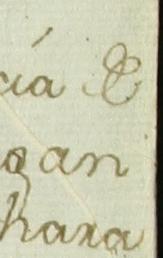 cía &
gan
hara